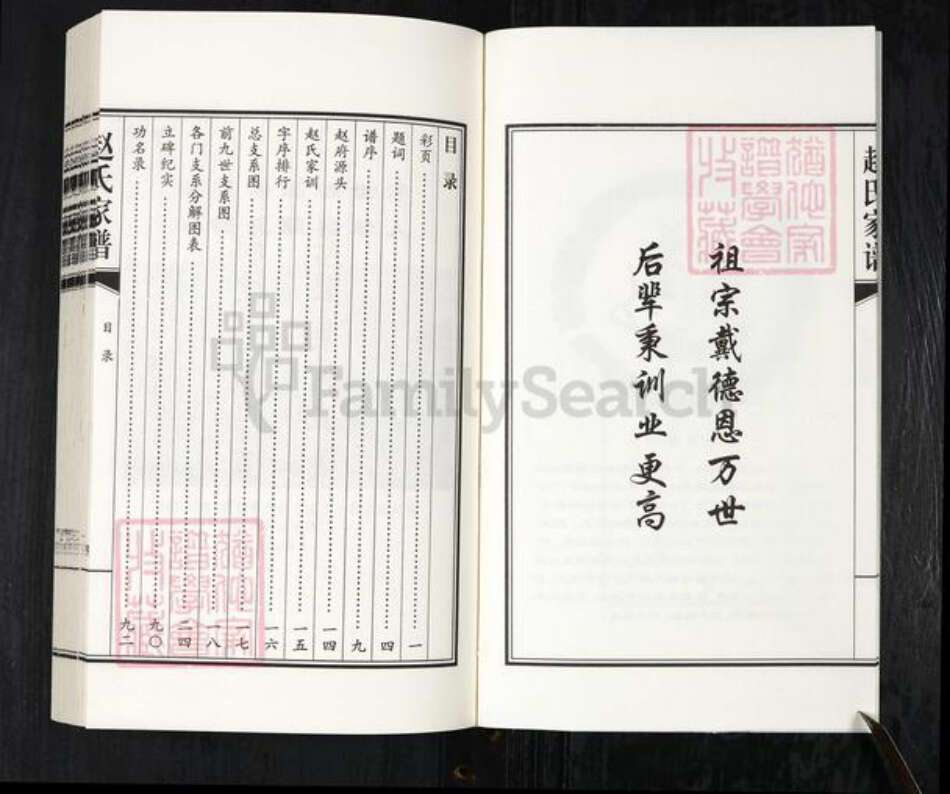 赵氏家谱
祖宗戴德恩万世
后辈秉训业更高
目录
彩页 一
题词 四
谱序 九
赵府源头 一四
赵氏家训 一五
字序排行 一六
总支系图 一七
前九世支系图 一八
各门支系分解图表 二四
立碑纪实 九〇
功名录 九二
赵氏家谱
目录
FamilySearch